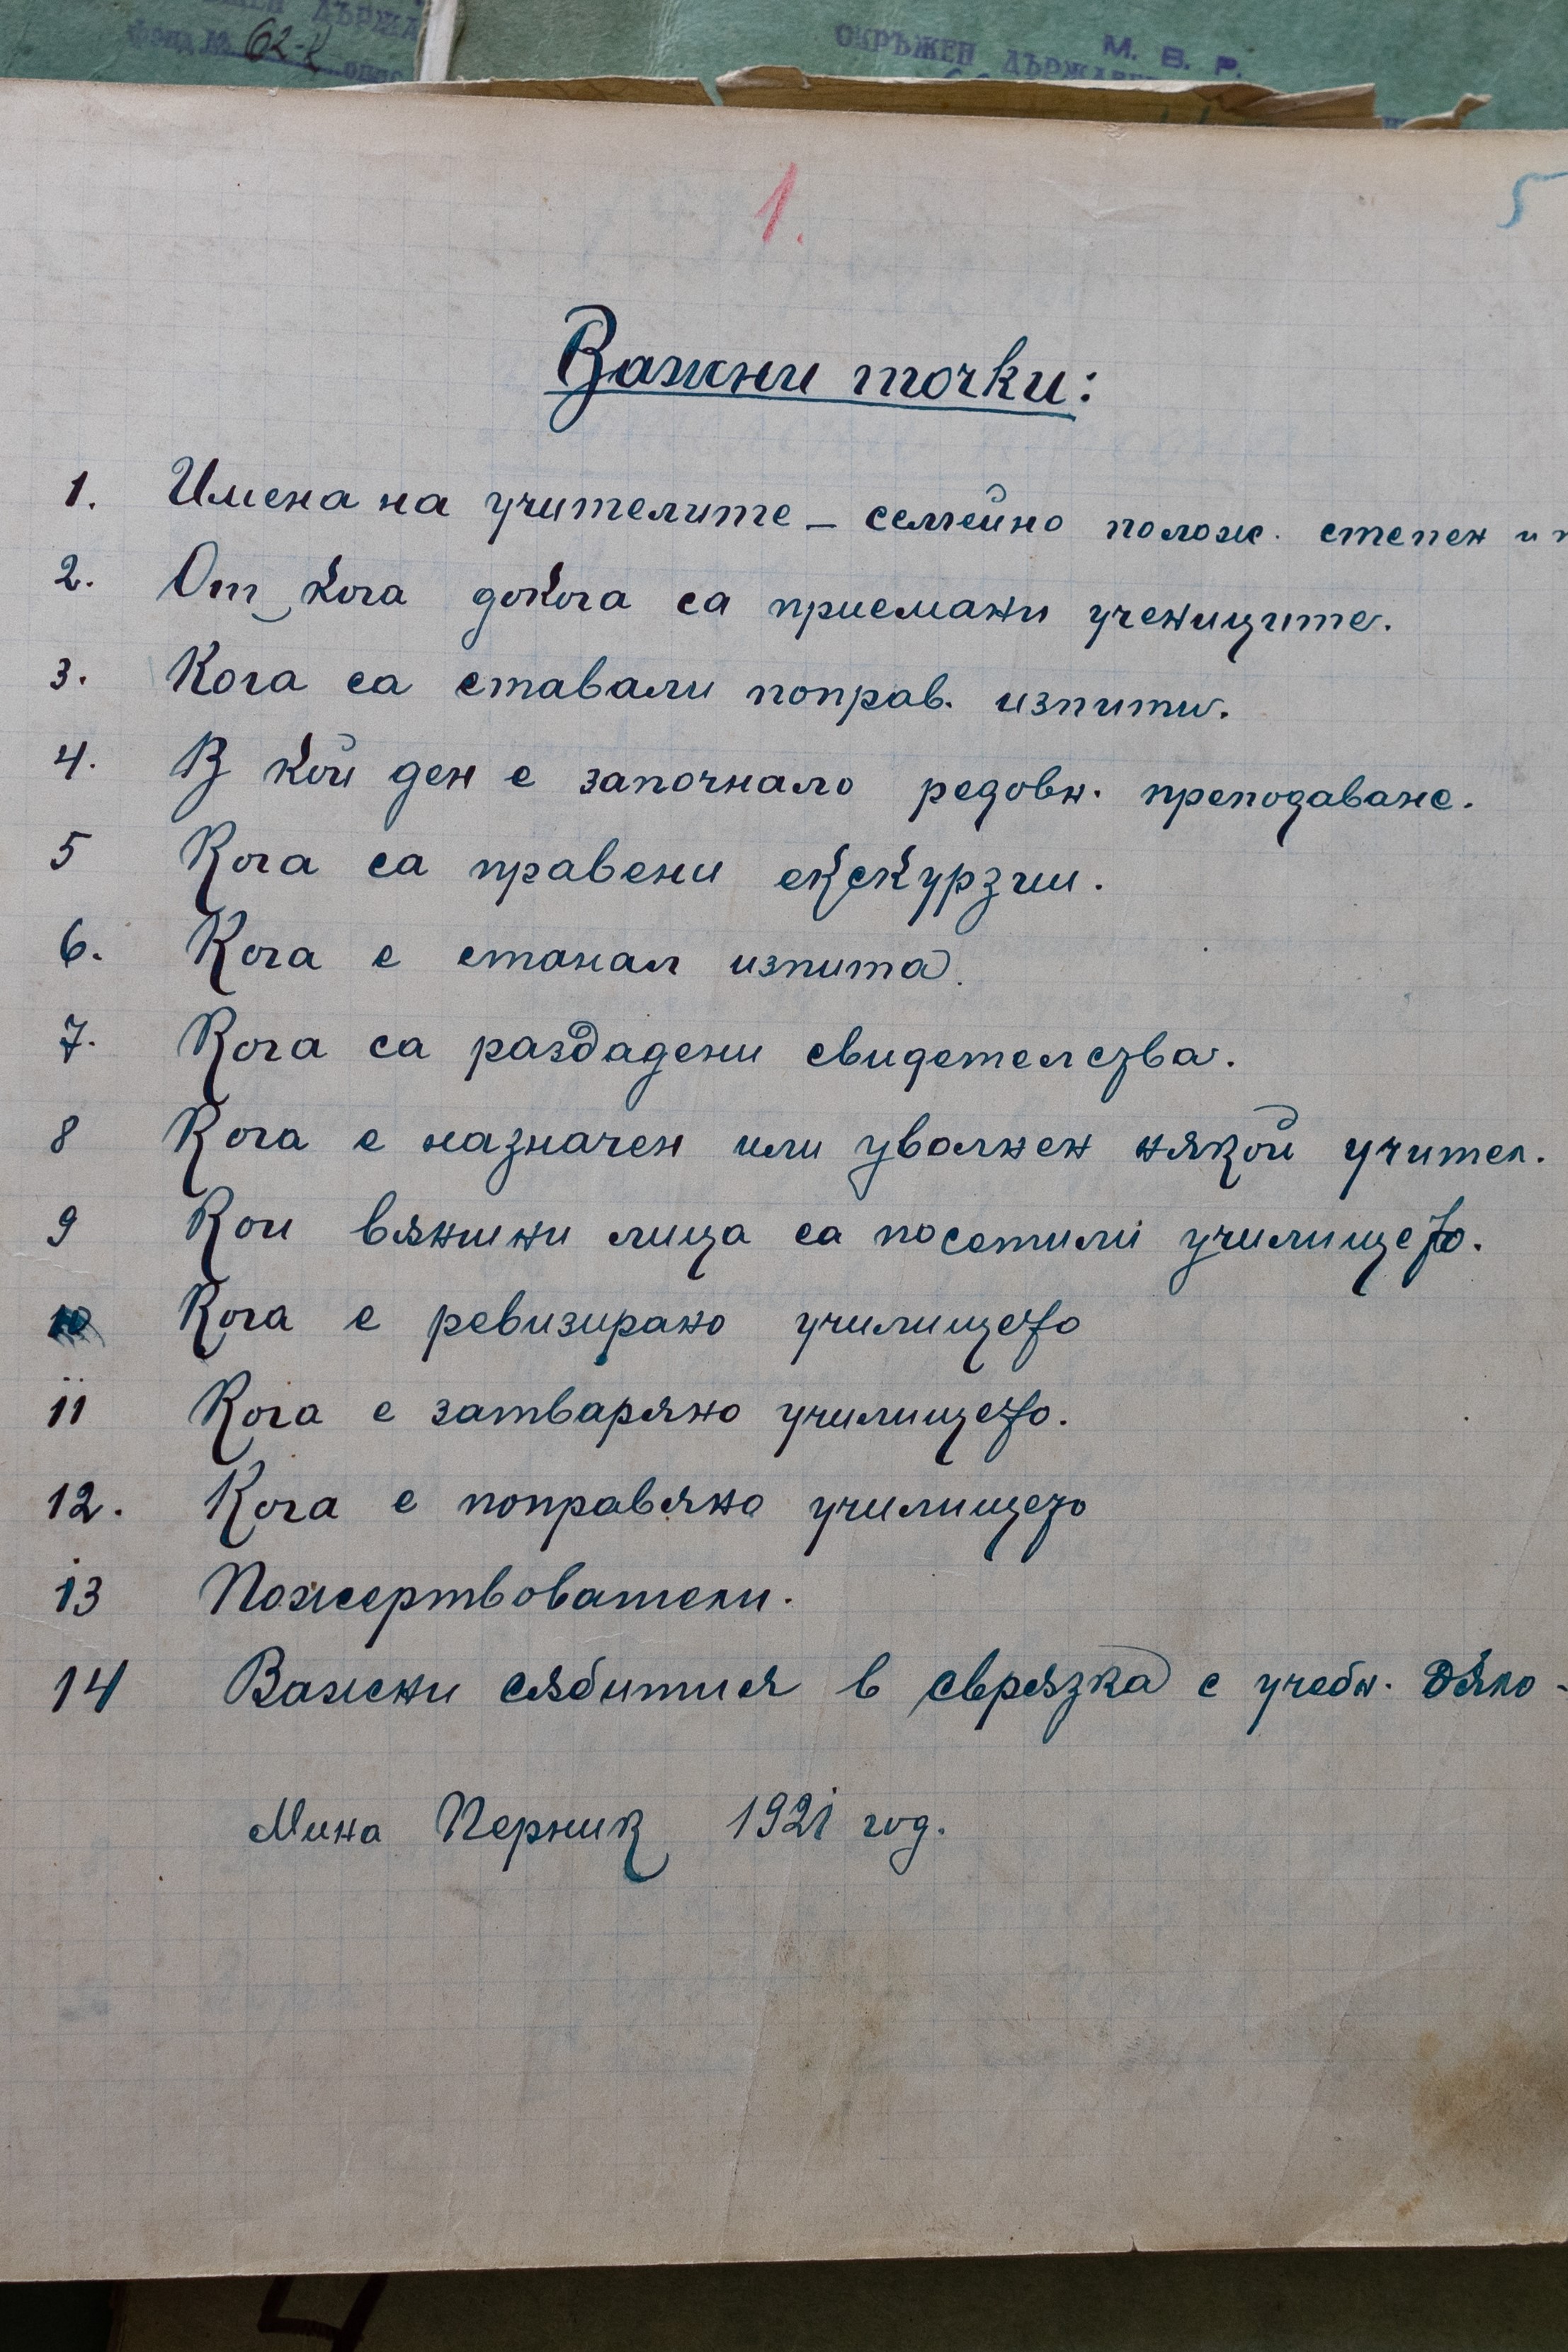 М. В. Р.
ОКРЪЖЕН
62-к
1.
5
Важни точки:
1. Имена на учителите – семейно полож. степен и
2. От кога докога са приемани учениците.
3. Кога са ставали поправ. изпити.
4. В кой ден е започнало редовн. преподаване.
5 Кога са правени екскурзии.
6. Кога е станал изпита.
7. Кога са раздадени свидетелства.
8 Кога е назначен или уволнен някой учител.
9 Кои вѫншни лица са посетили училището.
10 Кога е ревизирано училището
11 Кога е затваряно училището.
12. Кога е поправяно училището
13 Пожертвователи.
14 Важни сѫбития в сврѫзка с учебн. дѣло -
Мина Перник 1921 год.